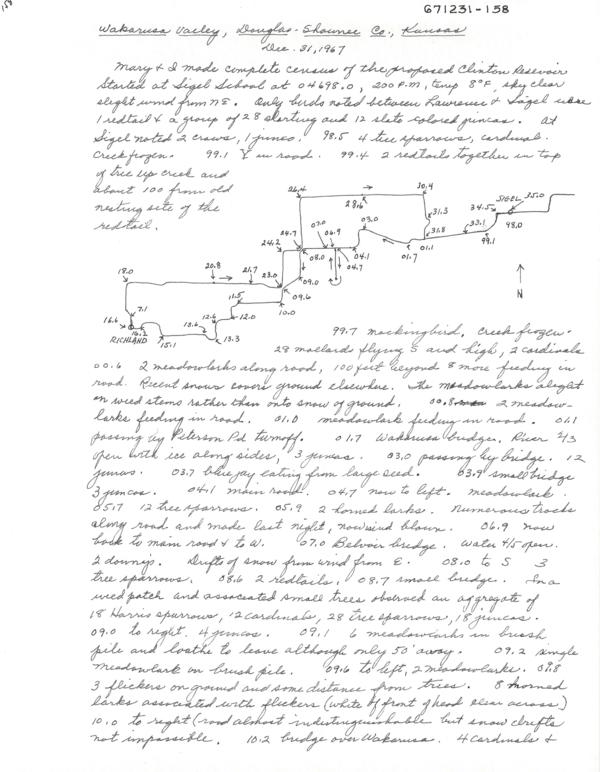 158
G71231-158
Wakarusa Valley, Douglas-Shawnee Co., Kansas
Dec. 31, 1967
Mary & I made complete census of the proposed Clinton Reservoir
Started at Sigel School at 04698.0, 200 P.M., temp 8°F, sky clear
slight wind from NE. Only birds noted between Lawrence & Sigel were
1 redtail & a group of 28 starling and 12 slate colored juncos. At
Sigel noted 2 crows, 1 junco. 98.5 4 tree sparrows, cardinal.
Creek frozen. 99.1 Y in road. 99.4 2 redtails together in top
of tree up creek and
about 100 from old
nesting site of the
redtail.
26.4
30.4
28.6
31.3
34.5
SIGEL
35.0
33.1
98.0
99.1
31.8
01.1
01.7
03.0
07.0
06.9
04.1
04.7
24.7
24.2
08.0
09.0
09.6
10.0
23.0
21.7
20.8
18.0
11.5
12.0
12.6
13.6
13.3
15.1
16.2
16.6
7.1
RICHLAND
N
99.7 mockingbird, creek frozen.
28 mallards flying S and high, 2 cardinals
00.6 2 meadowlarks along road, 100 feet beyond 8 more feeding in
road. Recent snows covers ground elsewhere. The meadowlarks alight
on weed stems rather than onto snow of ground. 00.8 2 meadow-
larks feeding in road. 01.0 meadowlark feeding in road. 01.1
passing by Peterson Rd turnoff. 01.7 Wakarusa bridge. River 2/3
open with ice along sides, 3 juncos. 03.0 passing by bridge. 12
juncos. 03.7 bluejay eating from large seed. 03.9 small bridge
3 juncos. 04.1 main road. 04.7 now to left. meadowlark.
05.7 12 tree sparrows. 05.9 2 horned larks. Numerous tracks
along road and made last night, now wind blown. 06.9 now
back to main road & to W. 07.0 Belvoir bridge. Water 4/5 open.
2 downys. Drifts of snow from wind from E. 08.0 to S 3
tree sparrows. 08.6 2 redtails, 08.7 small bridge. In a
weed patch and associated small trees observed an aggregate of
18 Harris sparrows, 12 cardinals, 28 tree sparrows, 18 juncos.
09.0 to right. 4 juncos. 09.1 6 meadowlarks in brush
pile and loathe to leave although only 50' away. 09.2 single
meadowlark on brush pile. 09.6 to left, 2 meadowlarks. 09.8
3 flickers on ground and some distance from trees. 8 horned
larks associated with flickers (white of front of head clear across)
10.0 to right (road almost indistinguishable but snow drifts
not impossible. 10.2 bridge over Wakarusa. 4 cardinals &